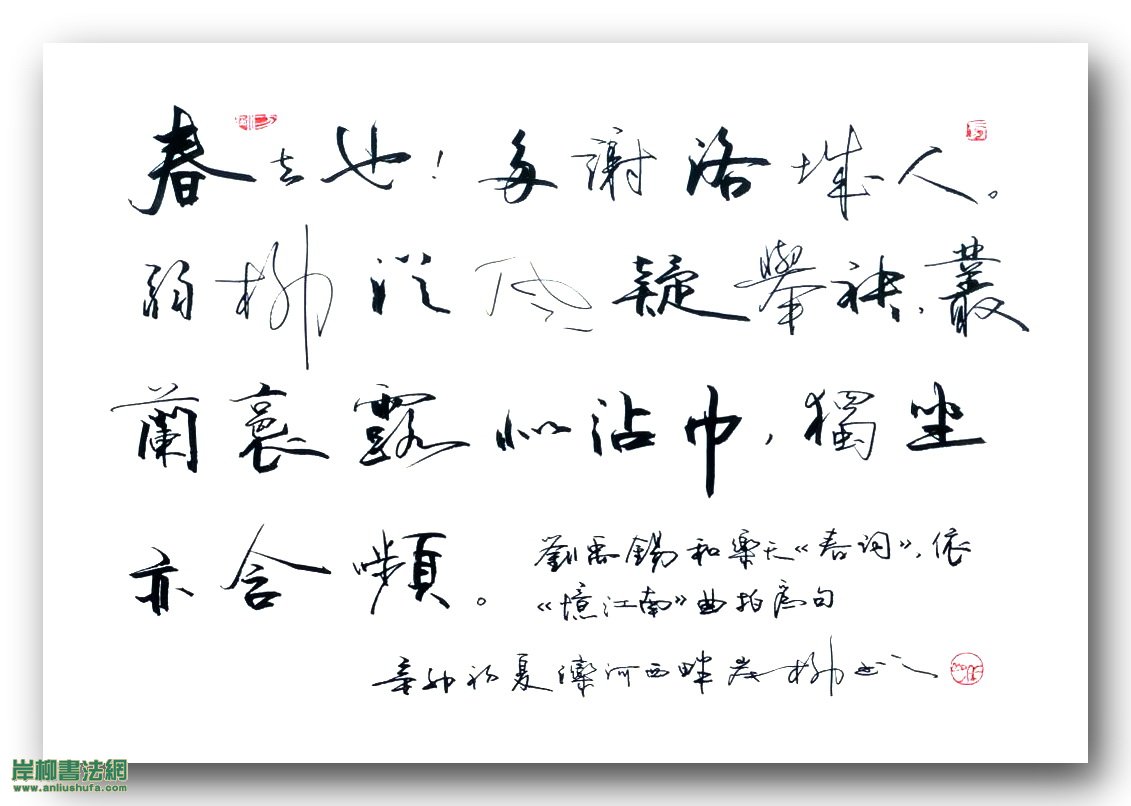 春去也！多謝洛城人。
弱柳從風疑舉袂，叢
蘭裛露似沾巾，獨坐
亦含嚬。
劉禹錫和樂天《春詞》，依
《憶江南》曲拍為句
辛卯初夏灤河西畔岸柳書之
岸柳書法網
www.anliushufa.com